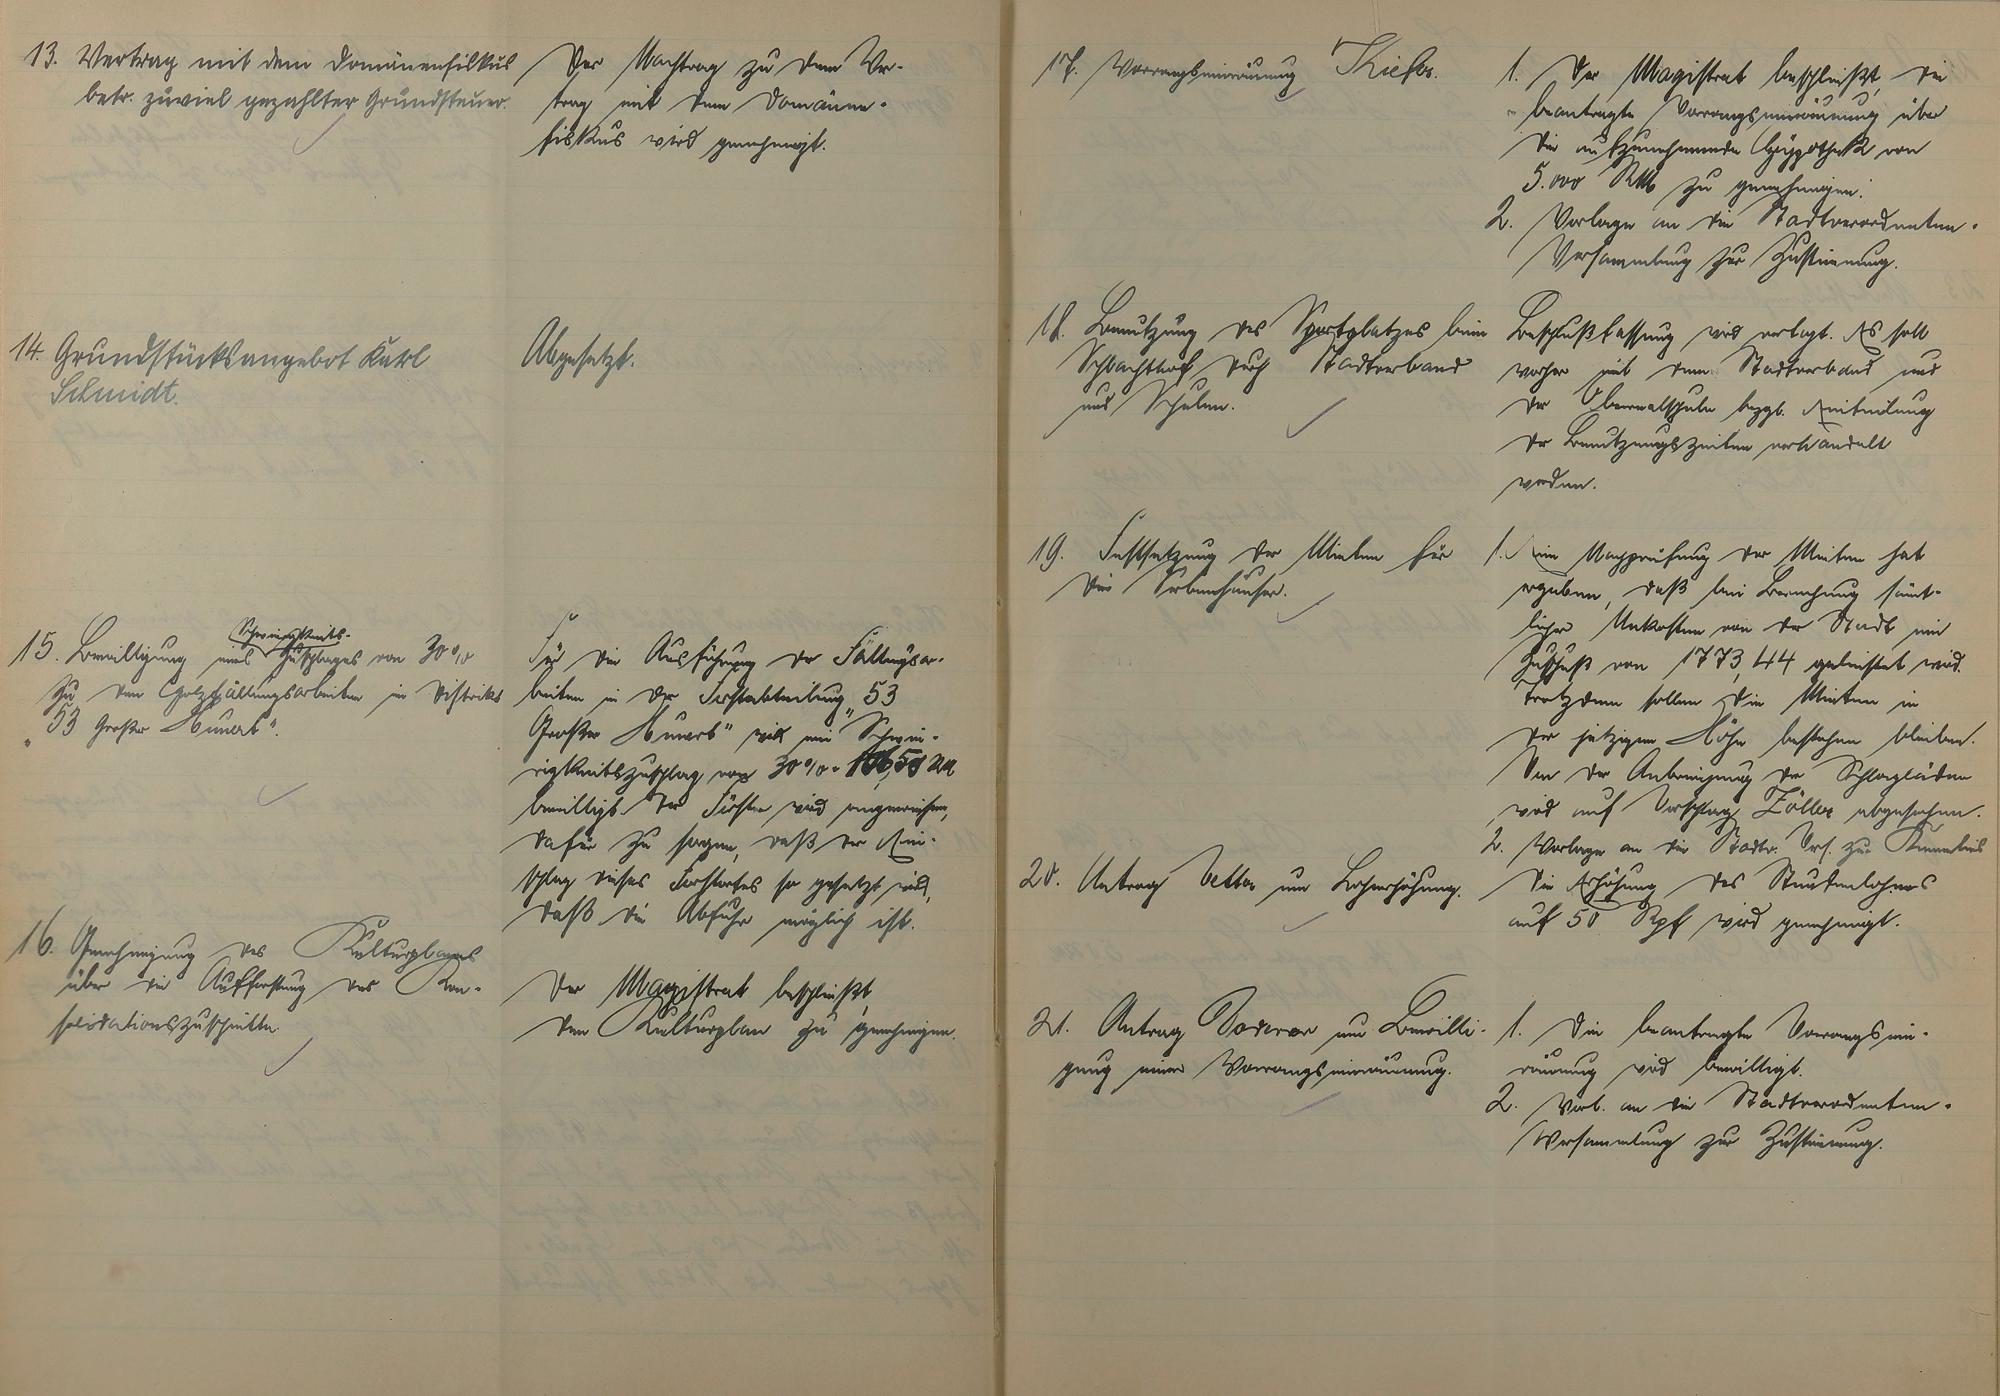 13. Vertrag mit dem Domänenfiskus
betr. zuviel gezahlter Grundsteuer.
Der Nachtrag zu dem Ver-
trag mit dem Domänen-
fiskus wird genehmigt.
14. Grundstücksangebot Karl
Schmidt.
Abgesetzt.
15. Bewilligung eines Schwierigkeits-
Zuschlages von 30%
zu den Holzfällungsarbeiten im Distrikt
"53 Großer
Für die Ausführung der Fällungsar-
beiten in der Forstabteilung "53
Großer wird ein Schwie-
rigkeitszuschlag von 30% = RM
bewilligt. Der Förster wird angewiesen,
dafür zu sorgen, daß der Ein-
schlag dieses Forstortes so gesetzt wird,
daß die Abfuhr möglich ist.
16. Genehmigung des Kulturplanes
über die Aufforstung des Kon-
solidationszuschnitts.
Der Magistrat beschließt,
den Kulturplan zu genehmigen.
17. Vorrangseinräumung Kiefer.
1. Der Magistrat beschließt, die
beantragte Vorrangseinräumung über
die aufzunehmende Hypothek von
5.000 RM zu genehmigen.
2. Vorlage an die Stadtverordneten-
Versammlung zur Zustimmung.
18. Benutzung des Sportplatzes beim
Schlachthof durch Stadtverband
und Schulen.
Beschlußfassung wird vertagt. Es soll
vorher mit dem Stadtverband und
der Oberrealschule bezgl. Einteilung
der Benutzungszeiten verhandelt
werden.
19. Festsetzung der Mieten für
die
1. Eine Nachprüfung der Mieten hat
ergeben, daß bei Berechnung sämt-
licher Unkosten von der Stadt ein
Zuschuß von 1773,44 geleistet wird.
Trotzdem sollen die Mieten in
der jetzigen Höhe bestehen bleiben.
Von der Anbringung der Schlagläden
wird auf Vorschlag Zöller abgesehen.
2. Vorlage an die Stadtv. Vers. zur Kenntnis
20. Antrag Vetter um Lohnerhöhung.
Die Erhöhung des Stundenlohnes
auf 50 Rpf wird genehmigt.
21. Antrag um Bewilli-
gung einer Vorrangseinräumung.
1. Die beantragte Vorrangsein-
räumung wird bewilligt.
2. Vorl. an die Stadtverordneten-
Versammlung zur Zustimmung.